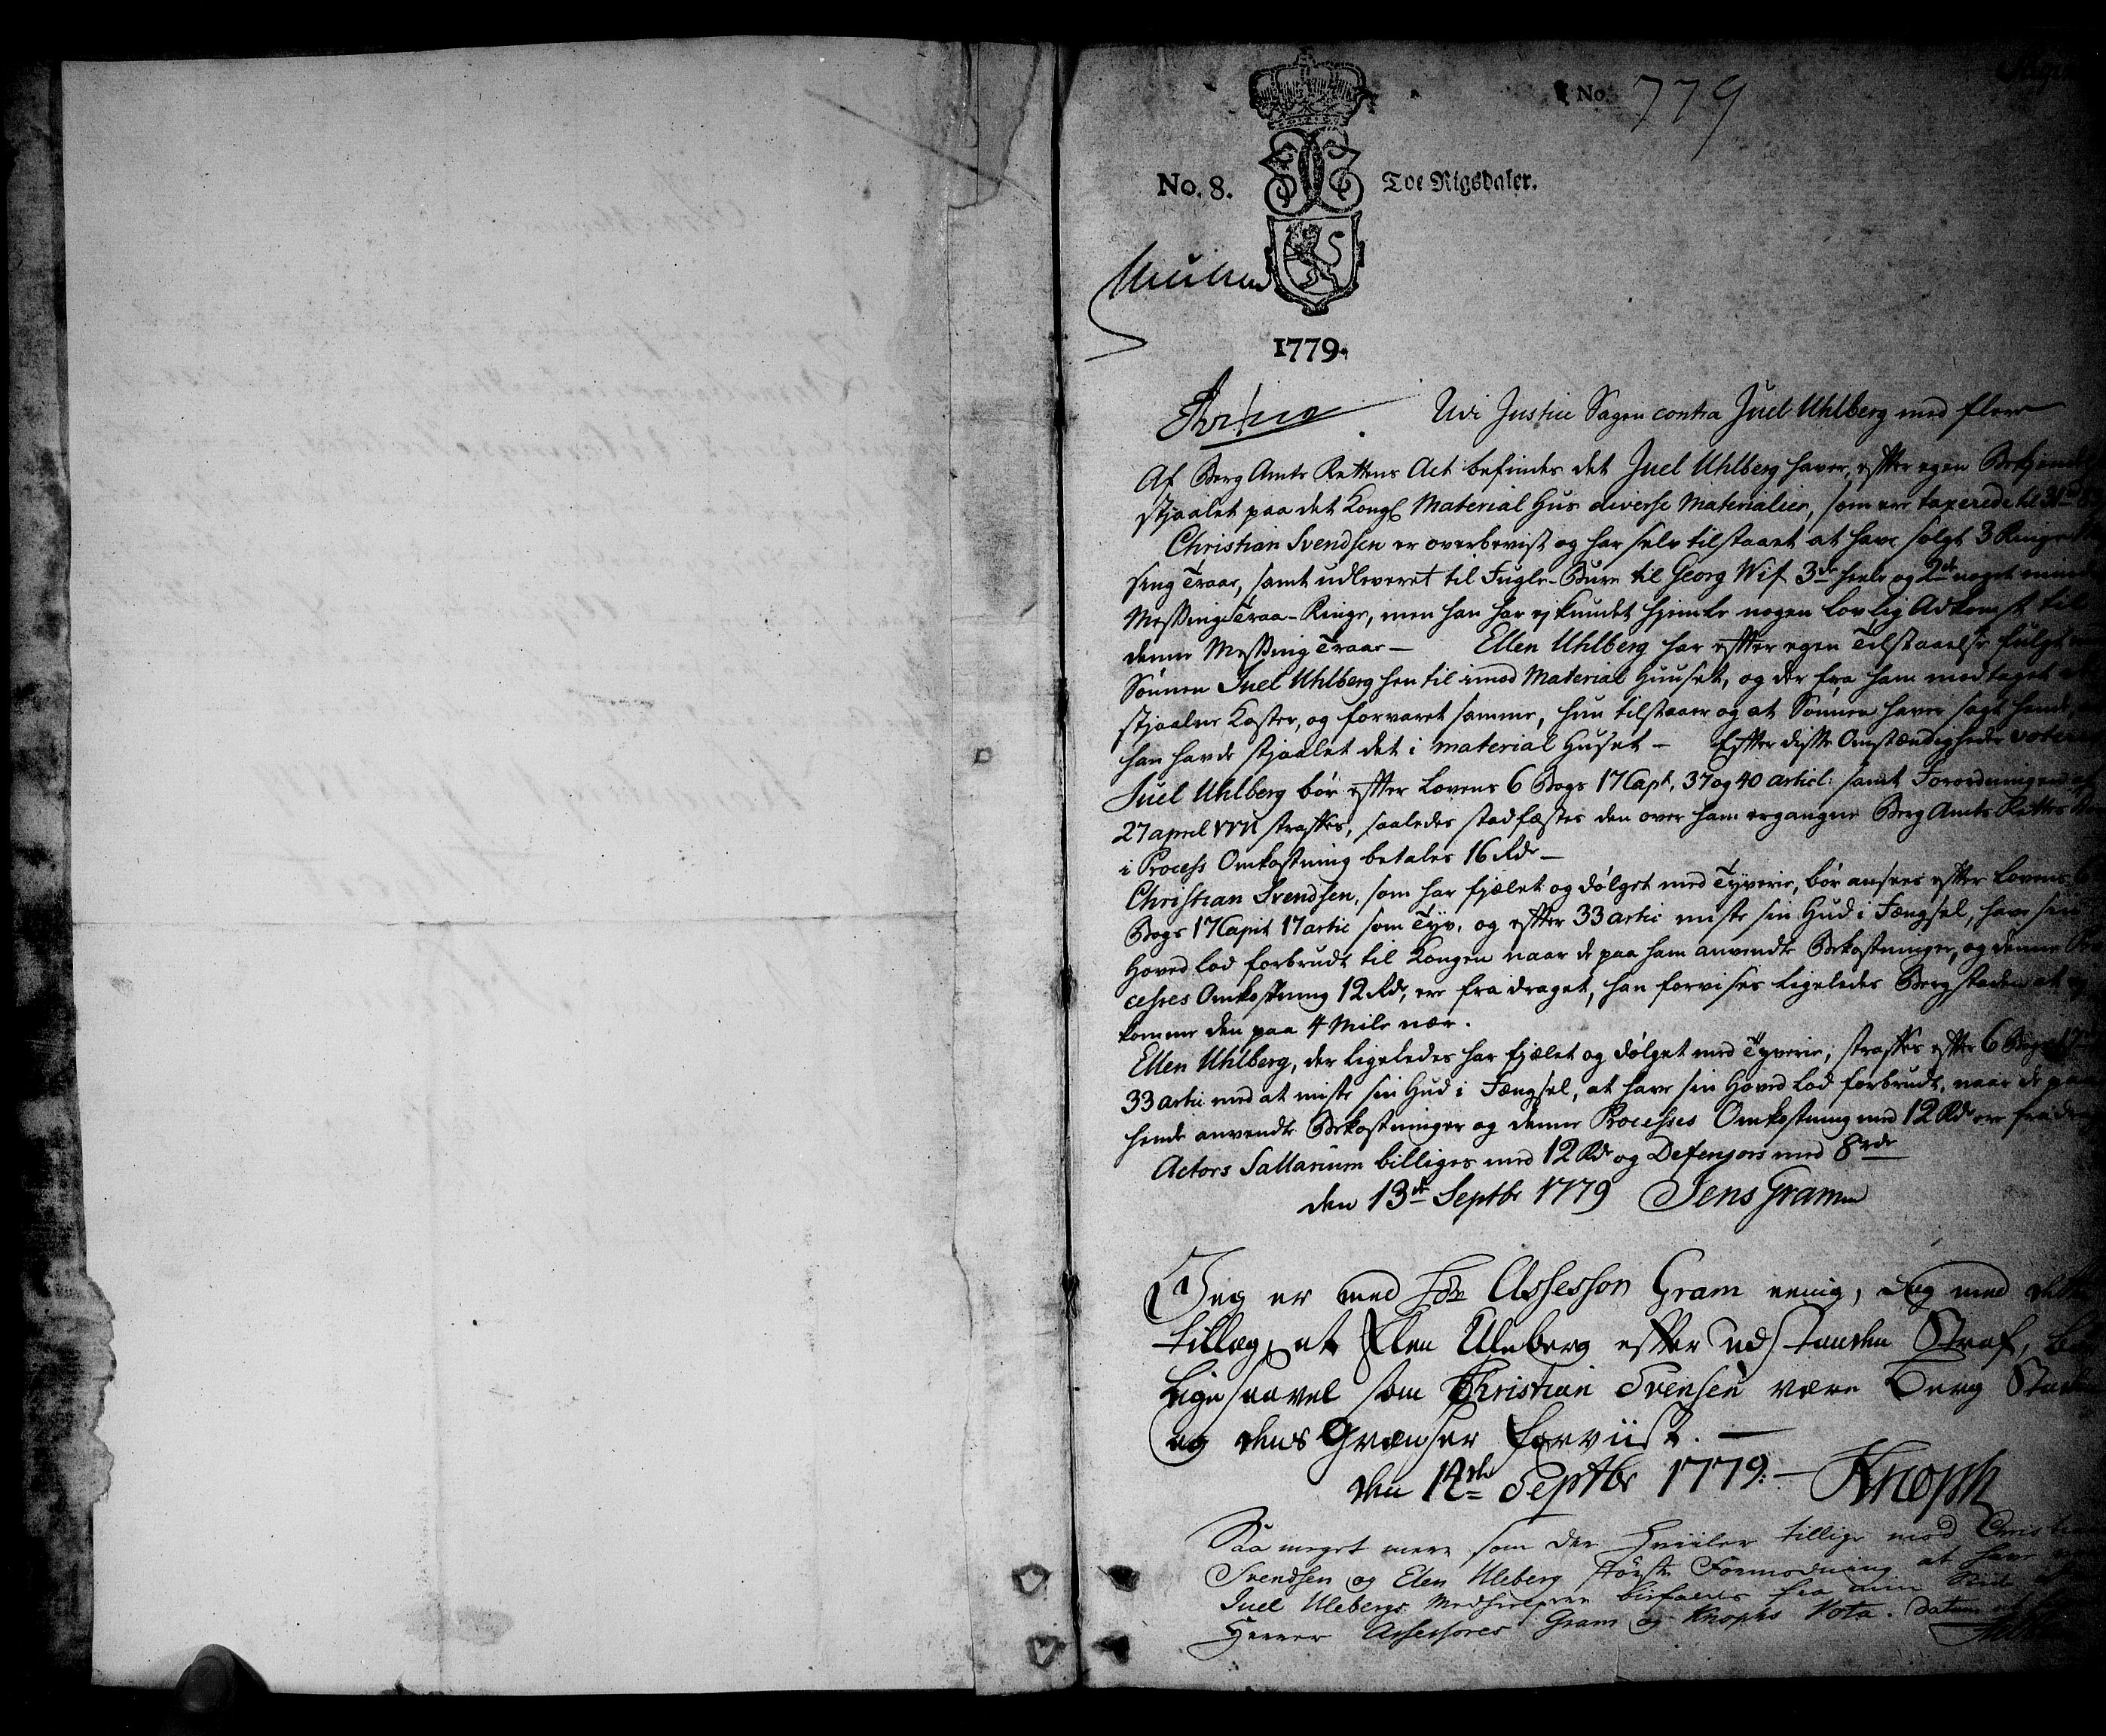 No. 779
No. 8. Toe Rigsdaler.
1779.
Udi Justice Sagen contra Juel Uhlberg med flere
Af Berg Amts Rettens Act befindes det Juel Uhlberg haver, efter egen
stjaalet paa det Kongl Material Hus diverse Materialier, som ere taxerede til
Christian Svendsen er overbevist og har selv tilstaaet at have solgt 3 Ringe
sing Traar, samt udleveret til Fugle-Bure til Georg Wif 3de heele og 2de noget mindre
Messing Traa-Ringe, men han har ej kundet hjemle nogen lovlig Adkomst til
denne Messing Traar - Ellen Uhlberg har efter egen Tilstaaelse fulgt
Sönnen Juel Uhlberg hen til imod Material Huuset, og der fra ham modtaget
stjaalne Koster, og forvaret samme, hun tilstaaer og at Sönnen haver sagt hende,
han havde stjaalet det i material Huset - Efter disse Omstændigheder
Juel Uhlberg bör efter Lovens 6 Bogs 17 Capt, 37 og 40 articl: samt Forordningen af
27 april straffes, saaledes stadfæstes den over ham ergangne Berg Amts Rettes
i Process Omkostning betales 16 Rdr -
Christian Svendsen, som har hjælet og dölget med Tyverie, bör ansees efter Lovens 6
Bogs 17 Capit 17 artic som Tyv, og efter 33 artic miste sin Hud i Fængsel, have sin
Hoved lod forbrudt til Kongen naar de paa ham anvendte Bekostninger, og denne
cesses Omkostning 12 Rdr, ere fra draget, han forvises ligeledes Bergstaden at ej
komme den paa 4 Mile nær.
Ellen Uhlberg, der ligeledes har hjælet og dölget med Tyverie, straffes efter 6 Bogs 17
33 artic med at miste sin Hud i Fængsel, at have sin Hoved lod forbrudt, naar de paa
hende anvendte Bekostninger og denne Processes Omkostning med 12 Rdr ere fra
Actors Sallarium billiges med 12 Rdr og Defensors med 8 rdr
den 13de Septbr 1779 Jens Gram
Jeg er med Hr Assessor Gram eenig, dog med dette
tillæg, at Elen Uleberg efter udstanden Straf, bör
ligesaavel som Christian Svensen være Berg Staden
og dens Grænser forviist. -
den 14de Septbr 1779. - Knoph
Saa meget mere som der hviiler tillige mod
Svendsen og Elen Uleberg störste Formodning at have
Juel Ulebergs bifaldes fra min Side
Herrer Assessores Gram og Knophs Vota. Datum